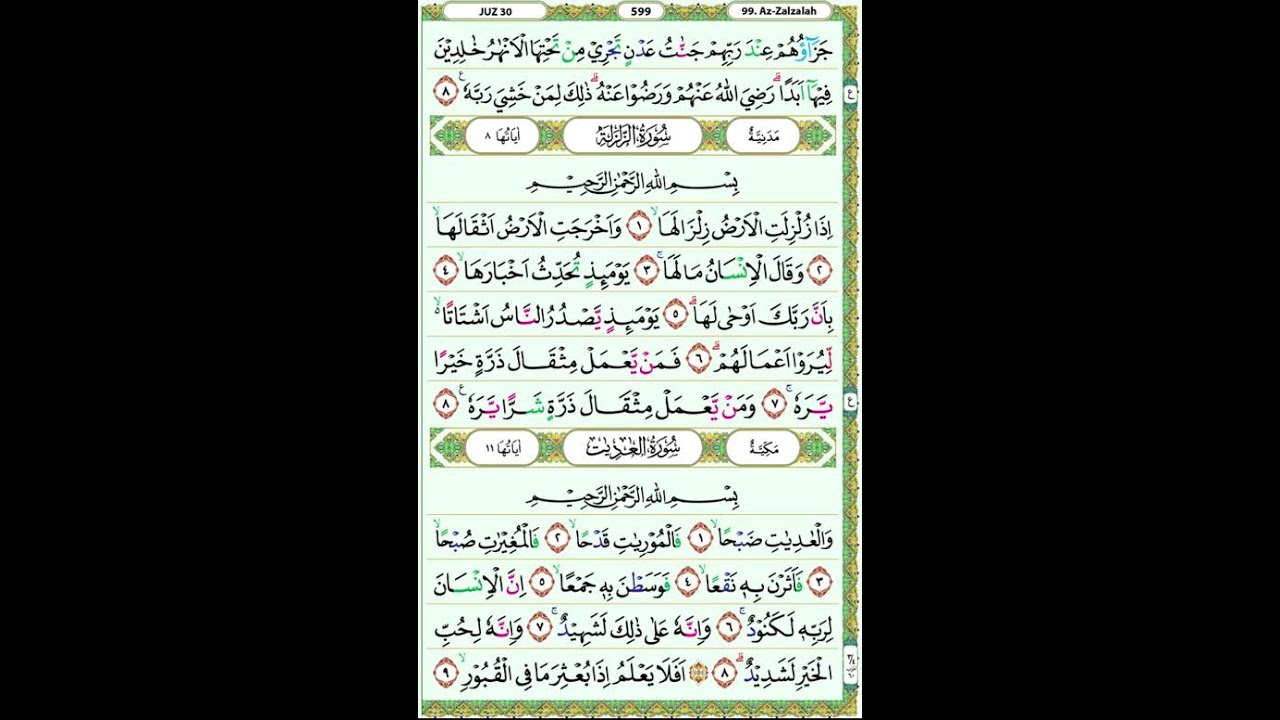 JUZ 30 599 99. Az-Zalzalah
جَزَآؤُهُمْ عِنْدَ رَبِّهِمْ جَنّٰتُ عَدْنٍ تَجْرِيْ مِنْ تَحْتِهَا الْاَنْهٰرُ خٰلِدِيْنَ
فِيْهَآ اَبَدًا ۗ رَضِيَ اللّٰهُ عَنْهُمْ وَرَضُوْا عَنْهُ ۗ ذٰلِكَ لِمَنْ خَشِيَ رَبَّهٗ ࣖ ٨
ع
مَدَنِيَّةٌ سُوْرَةُ الزَّلْزَلَةِ اٰيَاتُهَا ٨
بِسْمِ اللّٰهِ الرَّحْمٰنِ الرَّحِيْمِ
اِذَا زُلْزِلَتِ الْاَرْضُ زِلْزَالَهَا ۙ ١ وَاَخْرَجَتِ الْاَرْضُ اَثْقَالَهَا ۙ
٢ وَقَالَ الْاِنْسَانُ مَا لَهَا ۚ ٣ يَوْمَئِذٍ تُحَدِّثُ اَخْبَارَهَا ۙ ٤
بِاَنَّ رَبَّكَ اَوْحٰى لَهَا ۗ ٥ يَوْمَئِذٍ يَّصْدُرُ النَّاسُ اَشْتَاتًا ۙ
لِّيُرَوْا اَعْمَالَهُمْ ۗ ٦ فَمَنْ يَّعْمَلْ مِثْقَالَ ذَرَّةٍ خَيْرًا
يَّرَهٗ ۚ ٧ وَمَنْ يَّعْمَلْ مِثْقَالَ ذَرَّةٍ شَرًّا يَّرَهٗ ࣖ ٨
ع
مَكِّيَّةٌ سُوْرَةُ الْعٰدِيٰتِ اٰيَاتُهَا ١١
بِسْمِ اللّٰهِ الرَّحْمٰنِ الرَّحِيْمِ
وَالْعٰدِيٰتِ ضَبْحًا ۙ ١ فَالْمُوْرِيٰتِ قَدْحًا ۙ ٢ فَالْمُغِيْرٰتِ صُبْحًا ۙ
٣ فَاَثَرْنَ بِهٖ نَقْعًا ۙ ٤ فَوَسَطْنَ بِهٖ جَمْعًا ۙ ٥ اِنَّ الْاِنْسَانَ
لِرَبِّهٖ لَكَنُوْدٌ ۚ ٦ وَاِنَّهٗ عَلٰى ذٰلِكَ لَشَهِيْدٌ ۚ ٧ وَاِنَّهٗ لِحُبِّ
الْخَيْرِ لَشَدِيْدٌ ۗ ٨ ۞ اَفَلَا يَعْلَمُ اِذَا بُعْثِرَ مَا فِى الْقُبُوْرِ ۙ ٩